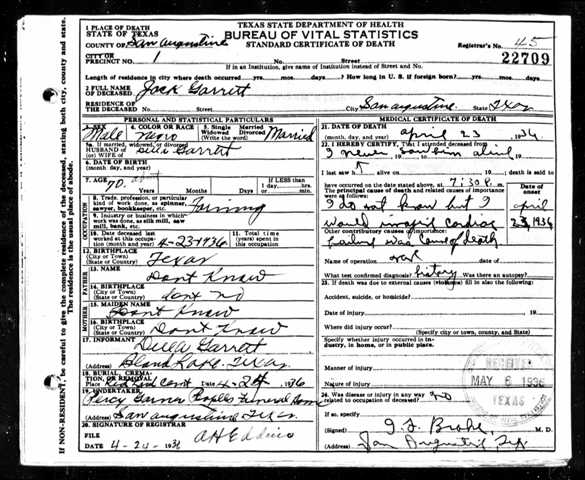 TEXAS STATE DEPARTMENT OF HEALTH
BUREAU OF VITAL STATISTICS
STANDARD CERTIFICATE OF DEATH
1 PLACE OF DEATH
STATE OF TEXAS
COUNTY OF San Augustine
CITY OR PRECINCT NO. 1
No. Street
Registrar's No. 45
22709
If death occurred in an Institution, give name of institution instead of Street and No.
Length of residence in city where death occurred yrs. mos. days. ? How long in U. S. if foreign born? yrs. mos. days
2 FULL NAME OF DECEASED Jack Garrett
RESIDENCE OF THE DECEASED No. Street City San augustine State Texas
PERSONAL AND STATISTICAL PARTICULARS
3. SEX Male
4. COLOR OR RACE Negro
5. Single Widowed Married Divorced (Write the word) Married
5a. If married, widowed, or divorced
HUSBAND OF (or) WIFE OF Della Garrett
6. DATE OF BIRTH
(month, day, and year)
7. AGE 70
Years Months Days
If LESS than 1 day, hrs. min.
OCCUPATION
8. Trade, profession, or particular kind of work done, as spinner, sawyer, bookkeeper, etc. Farming
9. Industry or business in which work was done, as silk mill, saw mill, bank, etc.
10. Date deceased last worked at this occupation (month and year) 4-23-1936
11. Total time (years) spent in this occupation
12. BIRTHPLACE
(City or Town)
(State or Country) Texas
FATHER
13. NAME Dont Know
14. BIRTHPLACE
(City or Town)
(State or Country)
MOTHER
15. MAIDEN NAME Dont Know
16. BIRTHPLACE
(City or Town)
(State or Country) Dont Know
17. INFORMANT Della Garrett
(Address) Texas
18. BURIAL, CREMATION, OR REMOVAL
Place Date 4-24 1936
19. UNDERTAKER Percy Garner Peoples Funeral Home
(Address) San augustine Texas
20. SIGNATURE OF REGISTRAR
FILE DATE 4-24-1936
A H Eddins
MEDICAL CERTIFICATE OF DEATH
21. DATE OF DEATH
(month, day, and year) april 23 1936
22. I HEREBY CERTIFY, That I attended deceased from
I never saw him alive
19 to 19
I last saw h alive on 19 death is said to
have occurred on the date stated above, at 7:30 P. m.
The principal cause of death and related causes of importance were as follows:
Date of onset
I do not know but I april
would imagin cardiac 23, 1936
Other contributory causes of importance:
failure was cause of death
Name of operation date of
What test confirmed diagnosis? history Was there an autopsy?
23. If death was due to external causes (violence) fill in also the following:
Accident, suicide, or homicide?
Date of injury 19
Where did injury occur?
(Specify city or town, county, and State)
Specify whether injury occurred in industry, in home, or in public place.
Manner of injury
Nature of injury
24. Was disease or injury in any way related to occupation of deceased? no
If so, specify
(Signed) M. D.
(Address) San Augustine, Tex
RECEIVED
MAY 6 1936
TEXAS
IF NON-RESIDENT, be careful to give the complete residence of the deceased, stating both city, county and state.
The residence means the usual place of abode.